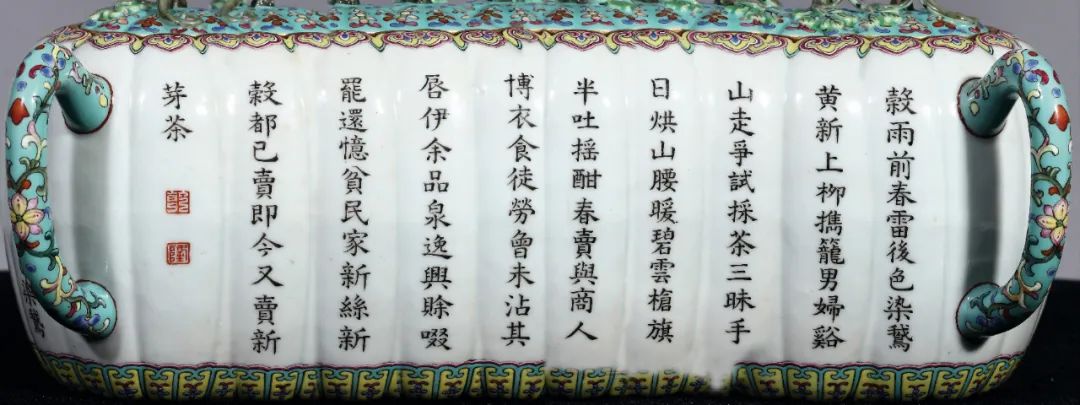 穀雨前春雷後色染鵞
黄新上栁擕籠男婦谿
山走爭試採茶三昧手
日烘山腰暖碧雲槍旗
半吐搖酣春賣與商人
博衣食徒勞曾未沾其
唇伊余品泉逸興賒啜
罷還憶貧民家新絲新
穀都已賣即今又賣新
芽茶
乾
隆